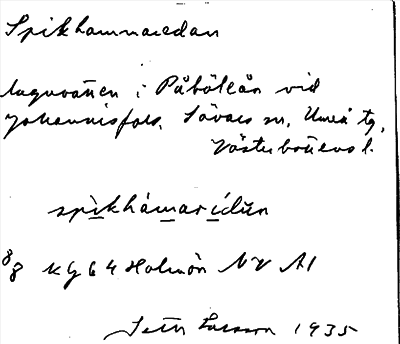 Spikhammaredan
lugnvatten i Påböleån vid
Johannisfors. Sävars sn, Umeå tg,
Västerbottens l.
spìkhámarídŭn
8/8 KG 64 Holmön NV A1
Seth Larsson 1935